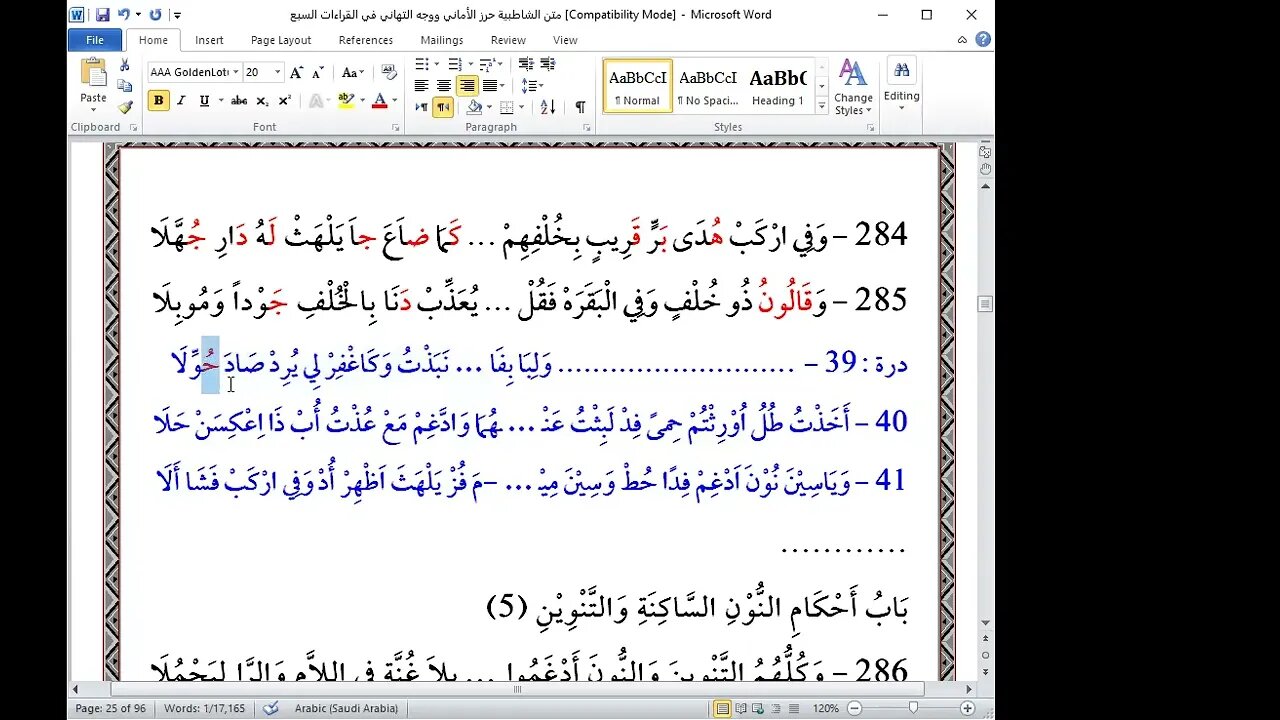 متن الشاطبية حرز الأماني ووجه التهاني في القراءات السبع [Compatibility Mode] - Microsoft Word
File Home Insert Page Layout References Mailings Review View
AAA GoldenLot 20
Paste
Clipboard Font Paragraph Styles
AaBbCcI AaBbCcI AaBbC
¶ Normal ¶ No Spaci... Heading 1
Change Styles Editing
284 – وَفِي ارْكَبْ هُدَى بَرٍّ قَرِيبٍ بِخُلْفِهِمْ ... كَمَا ضَاعَ جاَ يَلْهَثْ لَهُ دَارِ جُهَّلَا
285 – وَقَالُونُ ذُو خُلْفٍ وَفِي الْبَقَرَهْ فَقُلْ ... يُعَذِّبْ دَنَا بِالْخُلْفِ جَوْداً وَمُوبِلَا
درة : 39 – .......................... وَلِبَا بِفَا ... نَبَذْتُ وَكَاغْفِرْ لِي يُرِدْ صَادَ حُوِّلَا
40 – أَخَذْتُ طُلُ اُوْرِثْتُمْ حِمىً فِدْ لَبِثْتُ عَنْـ ... ـهُمَا وَادَّغِمْ مَعْ عُذْتُ أُبْ ذَا اِعْكِسَنْ حَلَا
41 – وَيَاسِيْنَ نُوْنَ اَدْغِمْ فِدًا حُطْ وَسِيْنَ مِيْـ ... –مَ فُزْ يَلْهَثَ اَظْهِرْ أُدْ وَفِي ارْكَبْ فَشَا أَلَا
............
بَابُ أَحْكَامِ النُّوْنِ السَّاكِنَةِ وَالتَّنْوِيْنِ (5)
286 – وَكُلُّهُمُ التَّنْوِينَ وَالنُّونَ أَدْغَمُوا ... بِلاَ غُنَّةٍ فِي اللاَّمِ وَالرَّا لِيَجْمُلَا
Page: 25 of 96 Words: 1/17,165 Arabic (Saudi Arabia) 120%